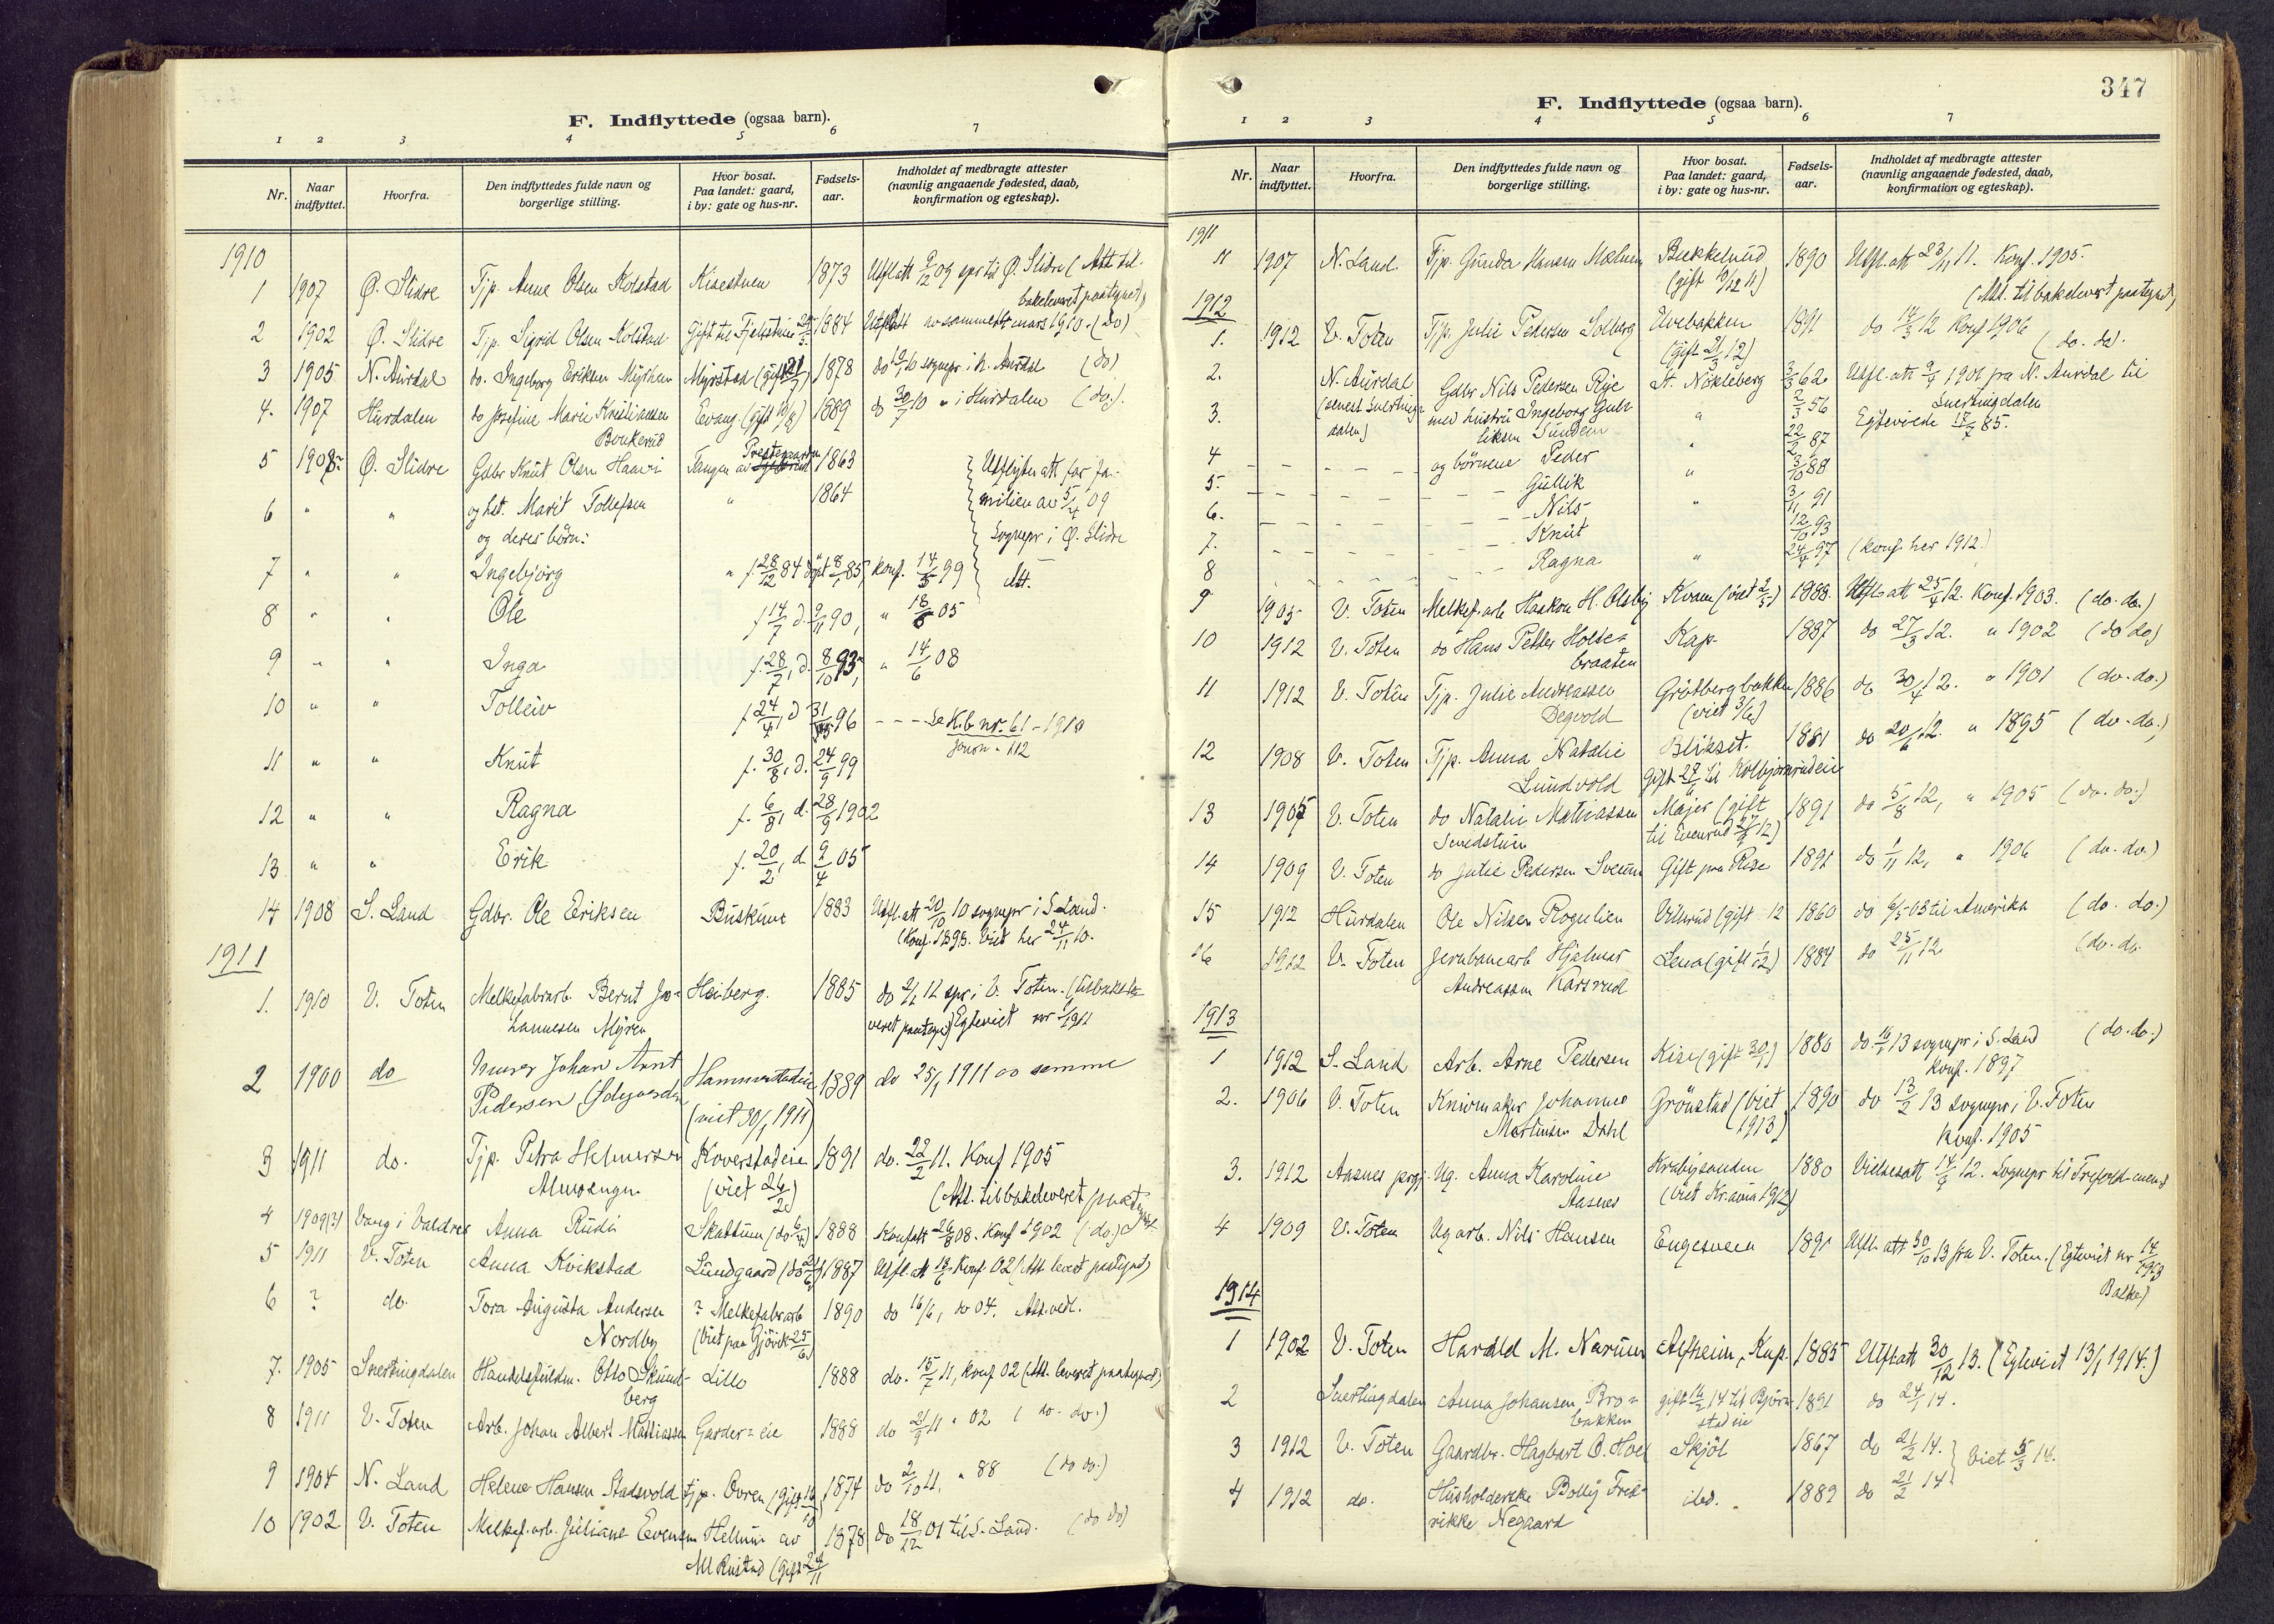 F. Indflyttede (ogsaa barn).
1 2 3 4 5 6 7
Nr. Naar indflyttet. Hvorfra. Den indflyttedes fulde navn og borgerlige stilling. Hvor bosat. Paa landet: gaard, i by: gate og hus-nr. Fødselsaar. Indholdet af medbragte attester (navnlig angaaende fødested, daab, konfirmation og egteskap).
1910
1 1907 Ø. Slidre Tjp. Anne Olsen Kolstad Kisestuen 1873 Utfl att 9/12 09 spr til Ø. Slidre (Att til-
bakeleveret paategnet)
2 1902 Ø. Slidre Tjp. Sigrid Olsen Kolstad Gift til Fjelstuen 1884 Utfl att av samme mars 1910. (do)
3 1905 N. Aurdal do. Ingeborg Eriksen Myrhun Myrstad (gift 21/7) 1878 sognepr. i N. Aurdal (do)
4. 1907 Hurdalen do Josefine Marie Kristiansen Eevang. (gift 1889 do 30/7 10 " i Hurdalen (do).
Bonkerud
Prestegaarden
5 1908 Ø. Slidre Gdbr Knut Olsen Haavi Tangen av 1863 Utflytn att for fa-
6 " " og hst. Marit Tollefsen " 1864 milien av 5/4 09
og deres børn: Sognepr i Ø. Slidre
7 " " Ingebjørg " f 28/12 84 døpt 8/1 85, konf. 14/5 99 Att.
8 " " Ole f 14/7 d. 9/11 90, " 18/6 05
9 " " Inga f. 28/7, d. 8/10 93, " 14/6 08
10 " " Tolleiv f 24/4, d 31/5 96 --- Se K.b nr. 61 - 1910
Journ. " 112
11 " " Knut f. 30/8, d. 24/9 99
12 " " Ragna f. 6/8, d. 28/9 1902
13 " " Erik f. 20/2, d 9/4 05
14 1908 S. Land Gdbr. Ole Eriksen Buskunt 1883 Utfl. att 20/10 10 sognepr i S Land.
(Konf. 1898. Viet her 24/11 10.
1911
1. 1910 V. Toten Melkefabrarb. Bernt Jo- Heiberg. 1885 do 2/1 11 spr i V. Toten. (tilbakele-
hannesen Myren veret paategn) Egteviet 1911
2 1900 do Murer Johan Arnt Hammerstadeie 1889 do 25/1 1911 av samme
Pedersen (Ødegaarden (viet 30/1 1911)
3 1911 do. Tjp. Petra Helmersen Koverstadeie 1891 do. 22/2 11. Konf 1905
Almosengen (viet 26/2) (Att. tilbakeleveret paategnet
4 1909(?) Vang i Valdres Anna Rudi Skattum (do 6/4) 1888 Konfatt 26/8 08. Konf 1902 (do.)
5 1911 V. Toten Anna Kvikstad Lundgaard (do 1887 Utfl. att Konf. 02 (Att. levert paategnet)
6 ? do. Tora Augusta Andersen ? Melkefabrarb 1890 do 16/6, do 04. Att. vedl.
Nordby (Viet paa Gjövik 25/6)
7. 1905 Snertingdalen Handelsfuldm. Otto Skund- Lillo 1888 do. 15/7 11, Konf 02 (Att. leveret paategnet)
berg
8 1911 V. Toten Arb. Johan Albert Mathiassen Garder=eie 1888 do 21/9 11 " 02 (do. do.)
9 1904 N. Land Helene Hansen Stadsvold tjp. Ovren (gift 1874 do 2/10 11. " 88 (do do.)
10 1902 V. Toten Melkef.arb. Juliane Evensen Hellum av 1878 do 18/12 01 til S. Land. (do do)
Rustad (gift 24/11
347
F. Indflyttede (ogsaa barn).
1 2 3 4 5 6 7
Nr. Naar indflyttet. Hvorfra. Den indflyttedes fulde navn og borgerlige stilling. Hvor bosat. Paa landet: gaard, i by: gate og hus-nr. Fødselsaar. Indholdet af medbragte attester (navnlig angaaende fødested, daab, konfirmation og egteskap).
1911
11 1907 N. Land. Tjp. Gunda Hansen Mælum Bukkelund 1890 Utfl. att 23/11 11. Konf. 1905.
(gift 9/12 11) (Att. tilbakelevert paategnet)
1912
1. 1912 V. Toten Tjp. Julie Pedersen Solberg Elvebakken 1891 do 14/3 12 Konf 1906 (do. do).
(gift 12)
2. N. Aurdal Gdbr Nils Pedersen Rye N. Nøkleberg 62. Utfl. att 9/4 1906 fra N. Aurdal til
3. (senest Snertings- med hustru Ingeborg Gul- " 56 Snertingdalen
dalen) liksen Sundem Egteviede 17/7 85.
4 - - - - - og børnene Peder " 22/2 87
5. - - - - - Gullik " 3/10 88
6. - - - - - Nils " 3/11 91
7. - - - - - Knut 12/10 93
8 - - - - - Ragna " 24/4 97 (konf. her 1912.)
9 1905 V. Toten Melkef.arb Haakon H. Olsby Kvam (viet 2/5) 1888. Utfl. att 25/4 12. Konf. 1903. (do. do.)
10 1912 V. Toten do Hans Petter Holse- Kap. 1887 do 27/3 12. " 1902 (do do)
braaten
11 1912 V. Toten Tjp. Julie Andreassen Grötbergbakken 1886 do 30/4 12. " 1901 (do. do.)
Degvold (viet 3/6)
12 1908 V. Toten Tjp. Anna Natalie Blikset. 1881 do 20/6 12. " 1895 (do. do.)
Lundvold Gift til Kolbjørnrudeie
13 1905 V. Toten do Natalie Mathiassen Majer (gift 1891 do 5/8 12, " 1905 (do. do.)
Smedstuen til Evenrud 12)
14 1909 V. Toten do Julie Pedersen Sveum Gift paa Rise 1891 do 1/11 12, " 1906 (do. do.)
15 1912 Hurdalen Ole Nilsen Rognlien Vilberud (gift 12 1860 do 6/5 03 til Amerika (do. do.)
16 1912 V. Toten Jernbanearb Hjalmar Lena (gift 1/12) 1884 do 25/11 12 (do. do.
Andreassen Karsrud
1913
1 1912 S. Land Arb. Arne Pedersen Kise (gift 30/1) 1880 do. 16/1 13 sognepr i S. Land (do. do.)
konf. 1897
2. 1906 V. Toten Knivmaker Johannes Grönstad (Viet 1890 do 13/2 13 sognepr i V. Toten
Martinsen Dahl 1913) konf. 1905
3. 1912 Aasnes prgj. Ug. Anna Karoline Krabysanden 1880 Vielsesatt 14/9 12. Sognepr til
Aasnes (viet Kr.ania 1912)
4 1909 V. Toten Ug arb. Nils Hansen Engesveen 1891 Utfl. att 30/10 13 fra V. Toten. (Egteviet nr 14/1913
Balke)
1914
1 1902 V. Toten Harald M. Narum Alfheim, Kap. 1885 Utflatt 30/12 13. (Egteviet 13/1 1914.)
2 Snertingdalen Anna Johansen Bro- gift 16/2 14 til Björn- 1891 do 24/1 14.
bakken stadeie
3 1912 V. Toten Gaardbr. Hagbart O. Hoel Skjöl 1867 do 21/2 14. } Viet 5/3 14.
4 1912 do. Husholderske Bolly Fred- ibid. 1889 do 21/2 14
rikke Negaard